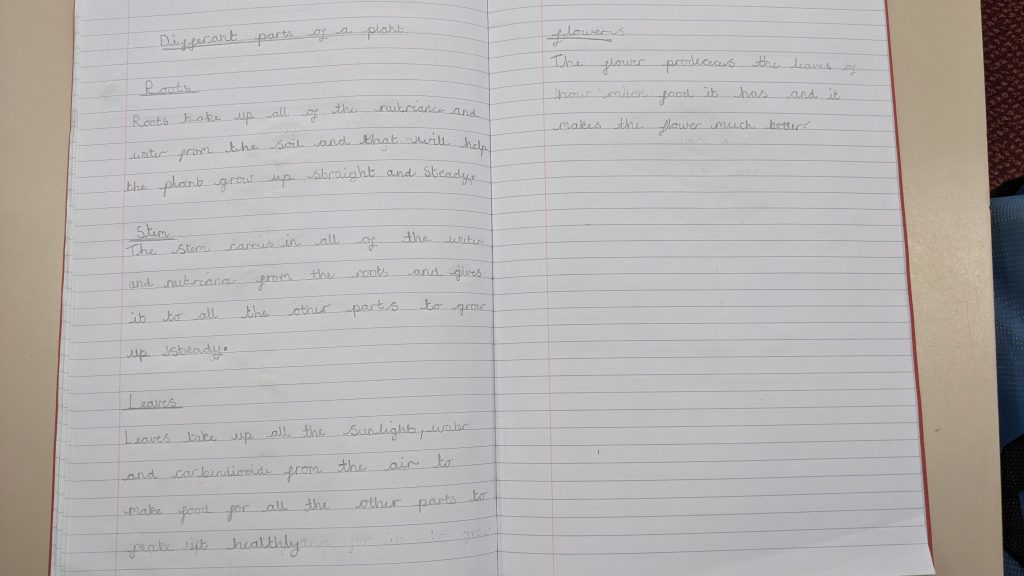 Differant parts of a plant
Roots
Roots take up all of the nutriance and
water from the soil and that will help
the plant grow up straight and steady.
Stem
The stem carries in all of the water
and nutriance from the roots and gives
it to all the other parts to grow
up steady.
Leaves
Leaves take up all the sunlight, water
and carbendioxide from the air to
make food for all the other parts to
it healthly and for it to grow
flowers
The flower prodeces the leaves of
how much food it has and it
makes the flower much better